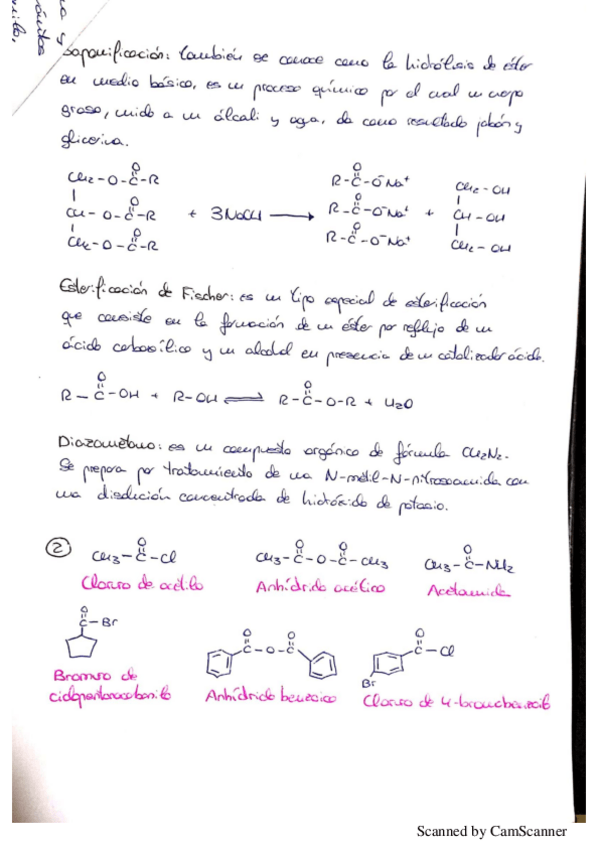 Saponificación: también se conoce como la hidrólisis de éster
en medio básico, es un proceso químico por el cual un cuerpo
graso, unido a un álcali y agua, da como resultado jabón y
glicerina.
CH2-O-C-R
O
CH-O-C-R
O
CH2-O-C-R
O
+ 3NaOH →
R-C-O-Na+
O
R-C-O-Na+
O
R-C-O-Na+
O
+
CH2-OH
CH-OH
CH2-OH
Esterificación de Fischer: es un tipo especial de esterificación
que consiste en la formación de un éster por reflujo de un
ácido carboxílico y un alcohol en presencia de un catalizador ácido.
O O
R-C-OH + R-OH ⇌ R-C-O-R + H2O
Diazometano: es un compuesto orgánico de fórmula CH2N2.
Se prepara por tratamiento de una N-metil-N-nitrosoamida con
una disolución concentrada de hidróxido de potasio.
② O O O O
CH3-C-Cl CH3-C-O-C-CH3 CH3-C-NH2
Cloruro de acetilo Anhídrido acético Acetamida
O
C-Br
O O
C-O-C
O
C-Cl
Br
Bromuro de
ciclopentanocarbonilo Anhídrido benzoico Cloruro de 4-bromobenzoilo
Scanned by CamScanner